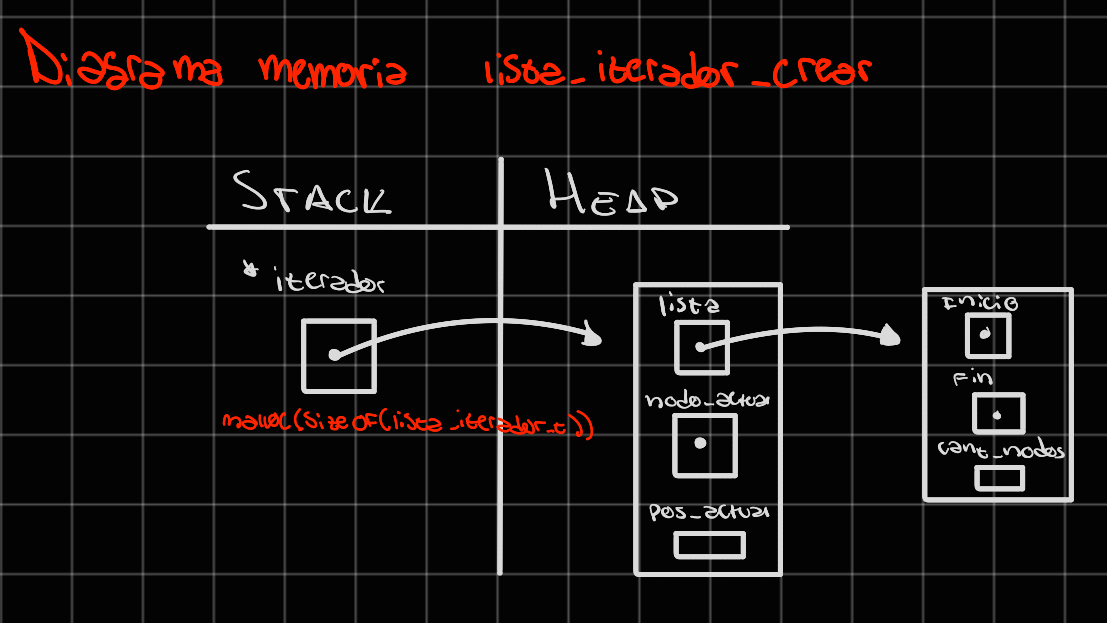 Diagrama memoria lista_iterador_crear
STACK
HEAP
* iterador
malloc(sizeof(lista_iterador_t))
lista
nodo_actual
pos_actual
Inicio
Fin
cant_nodos